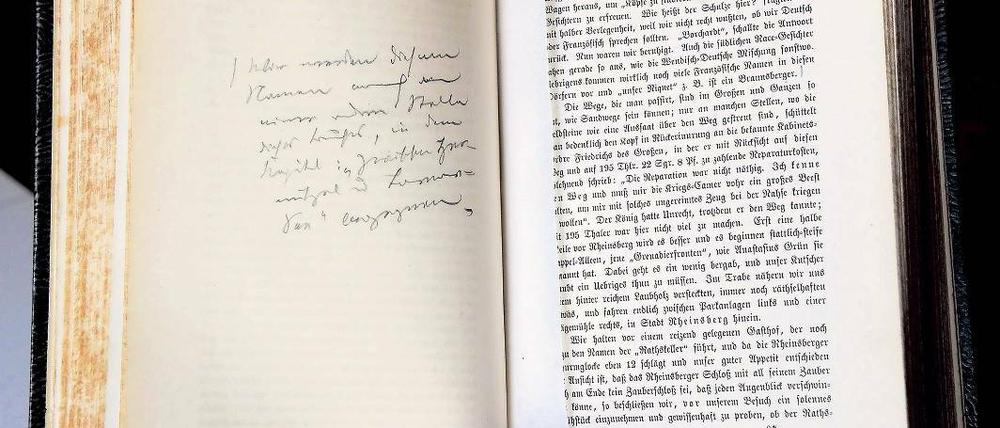 Wir werden diesem
Namen an
einer andern Stelle
dieses Buches, in dem
Kapitel: „Zwischen
begegnen.
Wagen heraus, um „Köpfe zu
Gesichtern zu erfreuen. Wie heißt der Schulze hier?
mit halber Verlegenheit, weil wir nicht recht wußten, ob wir Deutsch
oder Französisch sprechen sollten. „Borchardt“, schallte die Antwort
zurück. Nun waren wir beruhigt. Auch die südlichen Race-Gesichter
sahen gerade so aus, wie die Wendisch-Deutsche Mischung sonstwo.
Uebrigens kommen wirklich noch viele Französische Namen in diesen
Dörfern vor und „unser Niquet“ z. B. ist ein Braunsberger.
Die Wege, die man passirt, sind im Großen und Ganzen so
wie Sandwege sein können; nur an manchen Stellen, wo die
Feldsteine wie eine Aussaat über den Weg gestreut sind, schüttelt
man bedenklich den Kopf in Rückerinnerung an die bekannte Kabinets-
ordre Friedrichs des Großen, in der er mit Rücksicht auf diesen
Weg und auf 195 Thlr. 22 Sgr. 8 Pf. zu zahlende Reparaturkosten,
ablehnend schrieb: „Die Reparation war nicht nöthig. Ich kenne
den Weg und muß mir die Kriegs-Camer vohr ein großes Beest
halten, um mir mit solches ungereimtes Zeug bei der Nahse kriegen
wollen“. Der König hatte Unrecht, trotzdem er den Weg kannte;
mit 195 Thaler war hier nicht viel zu machen. Erst eine halbe
Meile vor Rheinsberg wird es besser und es beginnen stattlich-steife
Pappel-Alleen, jene „Grenadierfronten“, wie Anastasius Grün sie
genannt hat. Dabei geht es ein wenig bergab, und unser Kutscher
glaubt ein Uebriges thun zu müssen. Im Trabe nähern wir uns
dem hinter reichem Laubholz versteckten, immer noch räthselhaften
Etwas, und fahren endlich zwischen Parkanlagen links und einer
Sägemühle rechts, in Stadt Rheinsberg hinein.
Wir halten vor einem reizend gelegenen Gasthof, der noch
zu den Namen der „Rathskeller“ führt, und da die Rheinsberger
Thurmglocke eben 12 schlägt und unser guter Appetit entschieden
der Ansicht ist, daß das Rheinsberger Schloß mit all seinem Zauber
doch am Ende kein Zauberschloß sei, daß jeden Augenblick verschwin-
den könne, so beschließen wir, vor unserem Besuch ein solennes
Frühstück einzunehmen und gewissenhaft zu proben, ob der Raths-